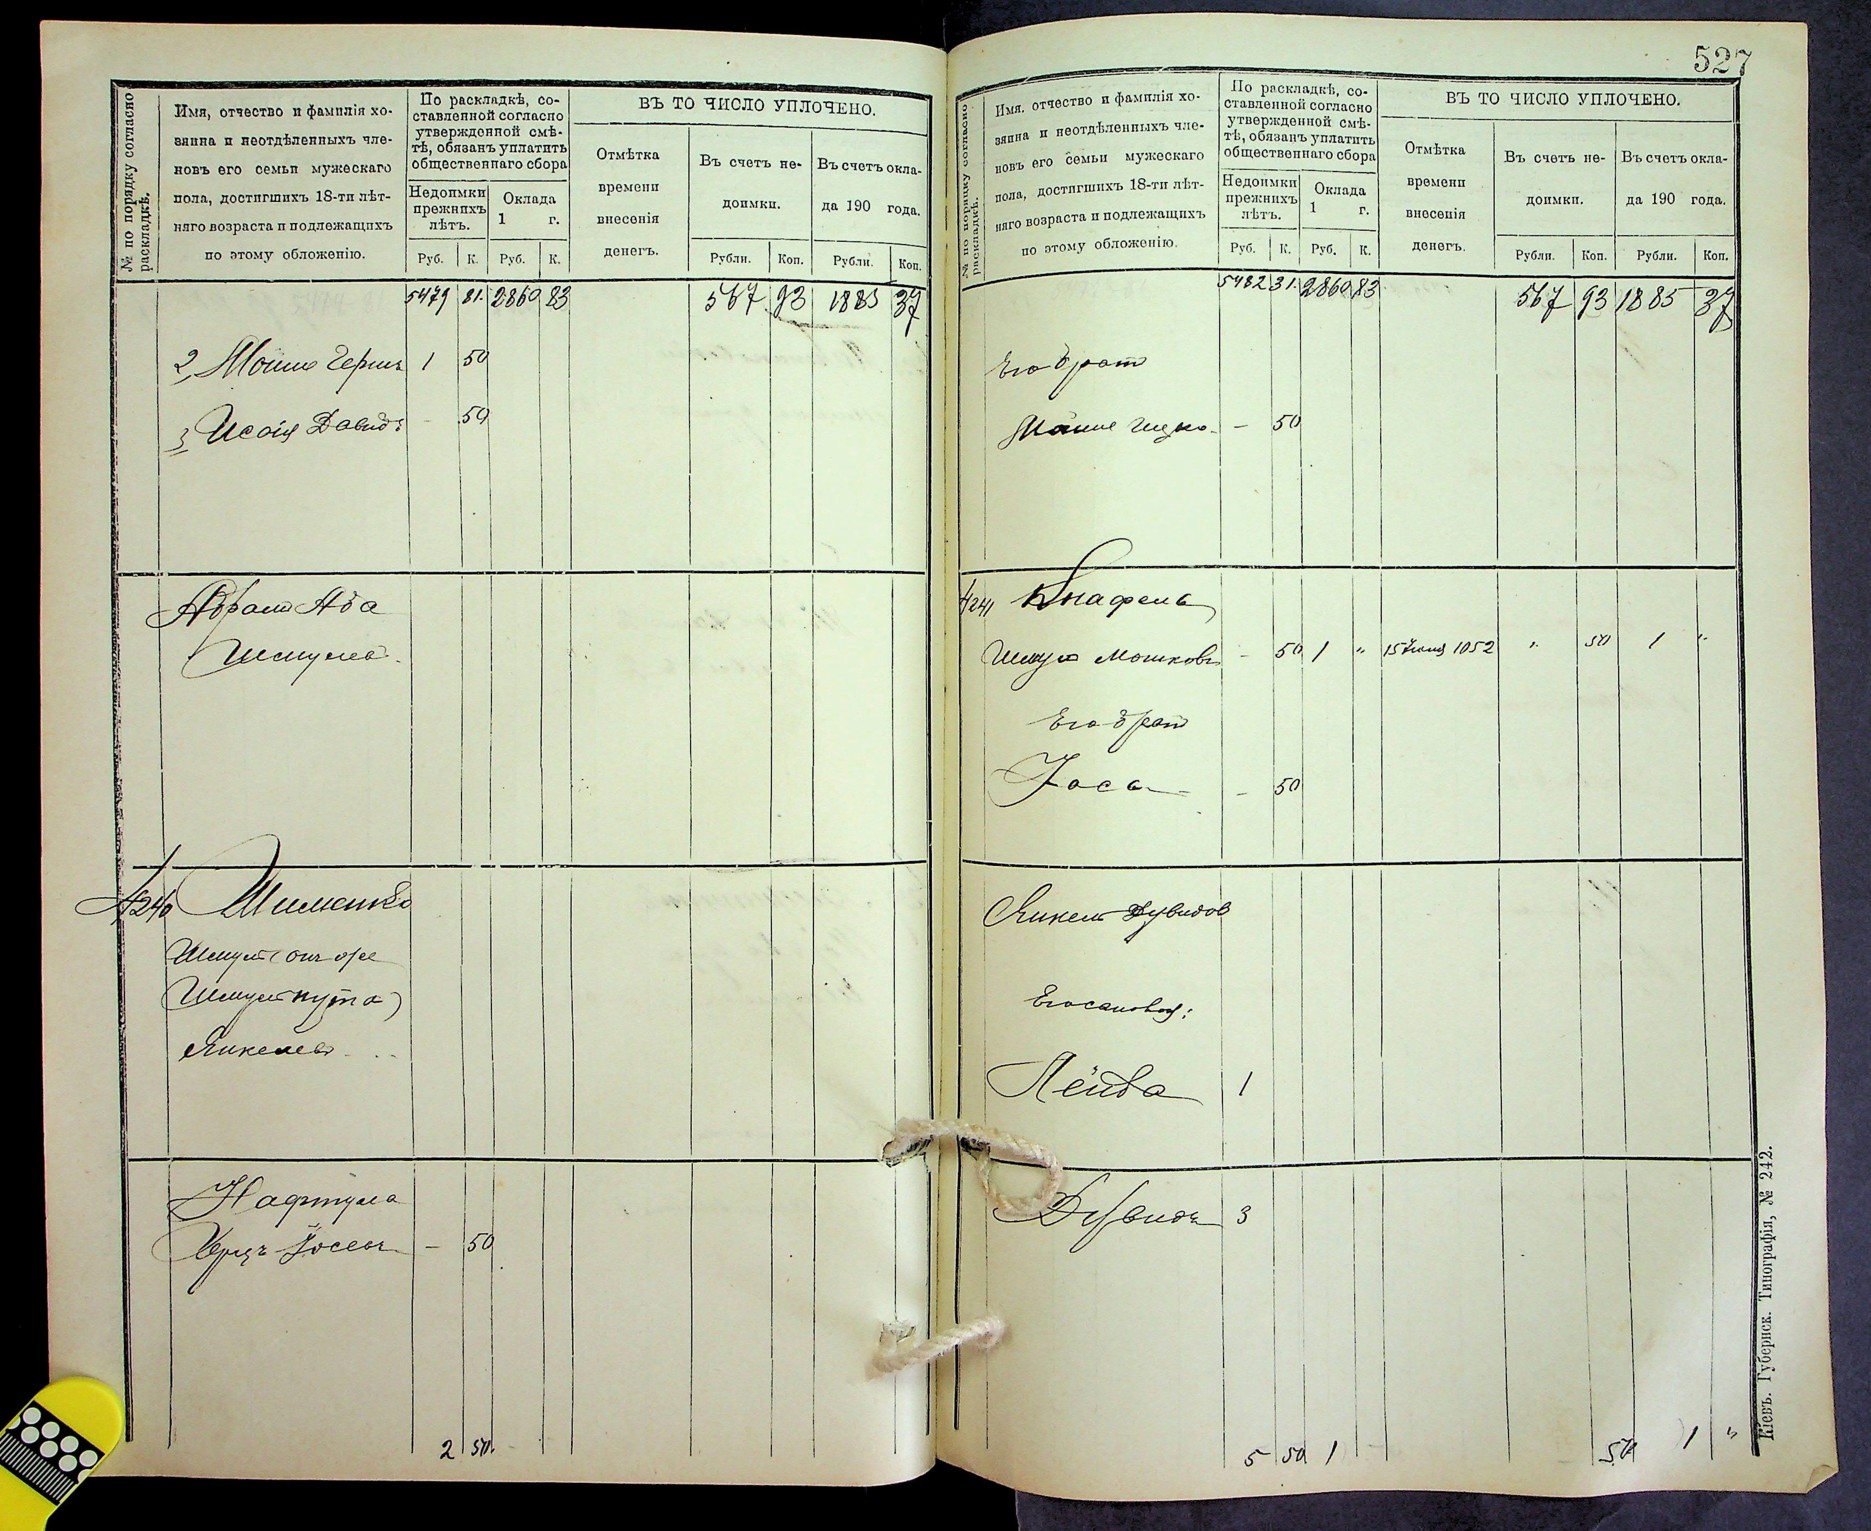 527
№ по порядку согласно раскладкѣ.
Имя, отчество и фамилія хо-
зяина и неотдѣленныхъ чле-
новъ его семьи мужескаго
пола, достигшихъ 18-ти лѣт-
няго возраста и подлежащихъ
по этому обложенію.
По раскладкѣ, со-
ставленной согласно
утвержденной смѣ-
тѣ, обязанъ уплатить
общественнаго сбора
Недоимки
прежнихъ
лѣтъ.
Оклада
1 г.
Руб. К. Руб. К.
ВЪ ТО ЧИСЛО УПЛОЧЕНО.
Отмѣтка
времени
внесенія
денегъ.
Въ счетъ не-
доимки.
Въ счетъ окла-
да 190 года.
Рубли. Коп. Рубли. Коп.
5479 81 2860 83 567 93 1885 37
2, Мошко Герш 1 50
3, Исаія Давидъ - 50
Абрамъ Аба
Шмуля
4240
Шмуль (онъ же
Янкелевъ
Нафтула
Герцъ Іосевъ - 50
2 50
№ по порядку согласно раскладкѣ.
Имя, отчество и фамилія хо-
зяина и неотдѣленныхъ чле-
новъ его семьи мужескаго
пола, достигшихъ 18-ти лѣт-
няго возраста и подлежащихъ
по этому обложенію.
По раскладкѣ, со-
ставленной согласно
утвержденной смѣ-
тѣ, обязанъ уплатить
общественнаго сбора
Недоимки
прежнихъ
лѣтъ.
Оклада
1 г.
Руб. К. Руб. К.
ВЪ ТО ЧИСЛО УПЛОЧЕНО.
Отмѣтка
времени
внесенія
денегъ.
Въ счетъ не-
доимки.
Въ счетъ окла-
да 190 года.
Рубли. Коп. Рубли. Коп.
5482 31 2860 83 567 93 1885 37
Его братъ
Мошко Ицко - 50
4241 Кнафель
Шмуль Мошковъ - 50 1 " 15 1052 " 50 1 "
Его братъ
Іось - 50
Янкель Дувидов
Его сыновья:
Лейба 1
Дувидъ 3
5 50 1 50 1 "
Кіевъ. Губернск. Типографія, № 242.